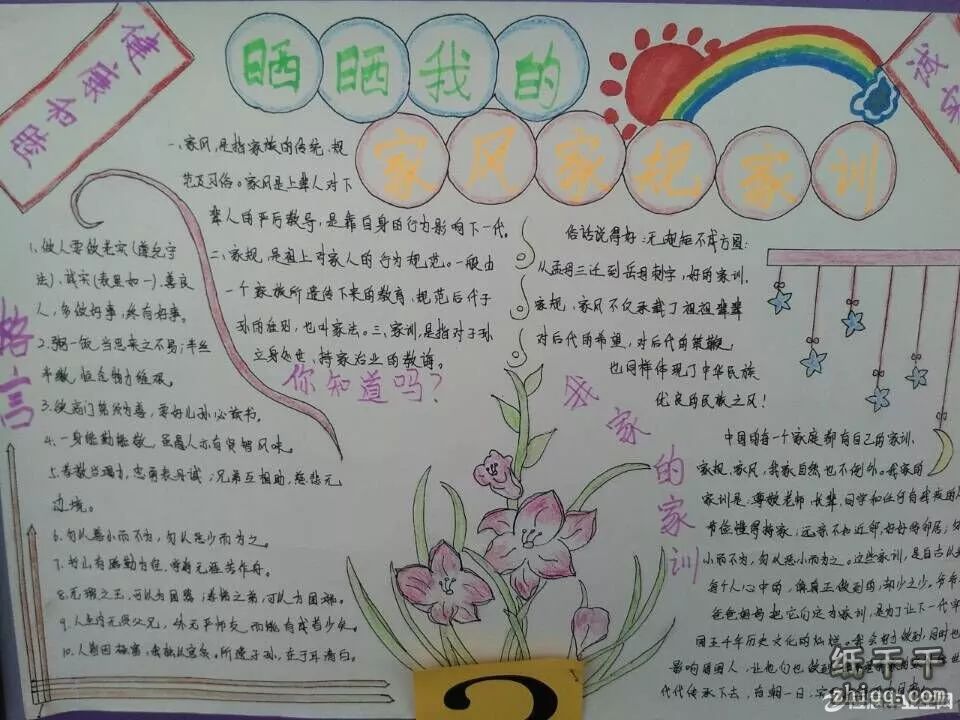 健康和睦
晒晒我的
家风家规家训
诚实
一、家风,是指家族的传统、规
范及习俗。家风是上辈人对下
辈人的严厉教导,是靠自身的行为影响下一代。
二、家规,是祖上对家人的行为规范。一般由
一个家族所遗传下来的教育、规范后代子
孙的准则,也叫家法。三、家训,是指对子孙
立身处世、持家治业的教诲。
你知道吗?
格言
1、做人要做老实(遵纪守
法)、诚实(表里如一)、善良
人,多做好事,终有好事。
2、粥一饭,当思来之不易;半丝
半缕,恒念物力维艰。
3、欲高门第须为善,要好儿孙必读书。
4、一身能勤能敬,虽愚人亦有贤智风味。
5、孝敬当竭力,忠勇表丹诚;兄弟互相助,慈悲无
边境。
6、勿以善小而不为,勿以恶小而为之。
7、书山有路勤为径,学海无涯苦作舟。
8、无瑕之玉,可以为国器;孝悌之弟,可以为国瑞。
9、人生内无贤父兄,外无严师友,而能有成者少矣。
10、
俗话说得好:无规矩不成方圆;
从孟母三迁到岳母刺字,好的家训、
家规、家风不仅承载了祖祖辈辈
对后代的希望,对后代的鞭策,
也同样体现了中华民族
优良的民族之风!
我家的家训
中国的每一个家庭都有自己的家训、
家规、家风,我家自然也不例外。我家的
家训是:尊敬老师、长辈、同学和任何
节俭懂得持家;远亲不如近邻,好好待邻居;勿
小而不为,勿以恶小而为之。这些家训,是自古以来
每个人心中的,但真正做到的,却少之少。爷爷
爸爸妈妈把它们定为家训,是为了让下一代
国五千年历史文化的灿烂。我会好好做到,同时也
影响周围人,让他们也做到
代代传承下去,
纸干干
zhigg.com